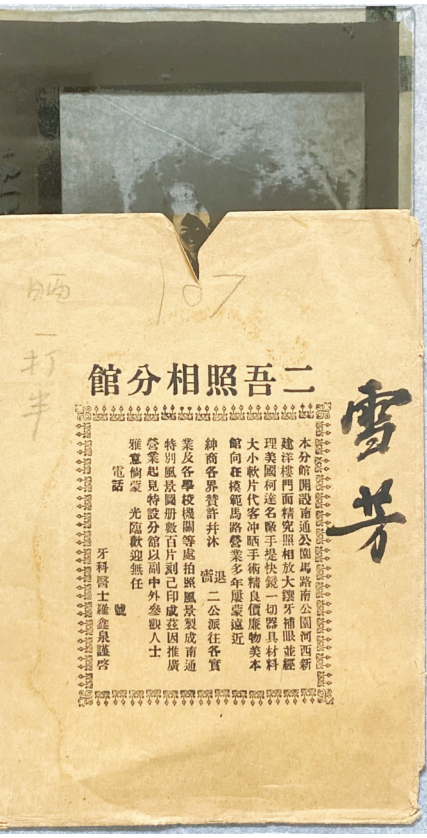 晒
一
打
半
107
二吾照相分館
雪芳
本分館開設南通公園馬路南公園河西新
建洋樓門面精究照相放大鑲牙補眼並經
理美國柯達名廠手提快鏡一切器具材料
大小軟片代客冲晒手術精良價廉物美本
館向在模範馬路營業多年屢蒙遠近
紳商各界贊許并沐 退嗇 二公派往各實
業及各學校機關等處拍照風景製成南通
特別風景圖册數百片刻己印成茲因推廣
營業起見特設分館以副中外參觀人士
雅意倘蒙 光臨歡迎無任
電話 號
牙科醫士羅鑫泉謹啓